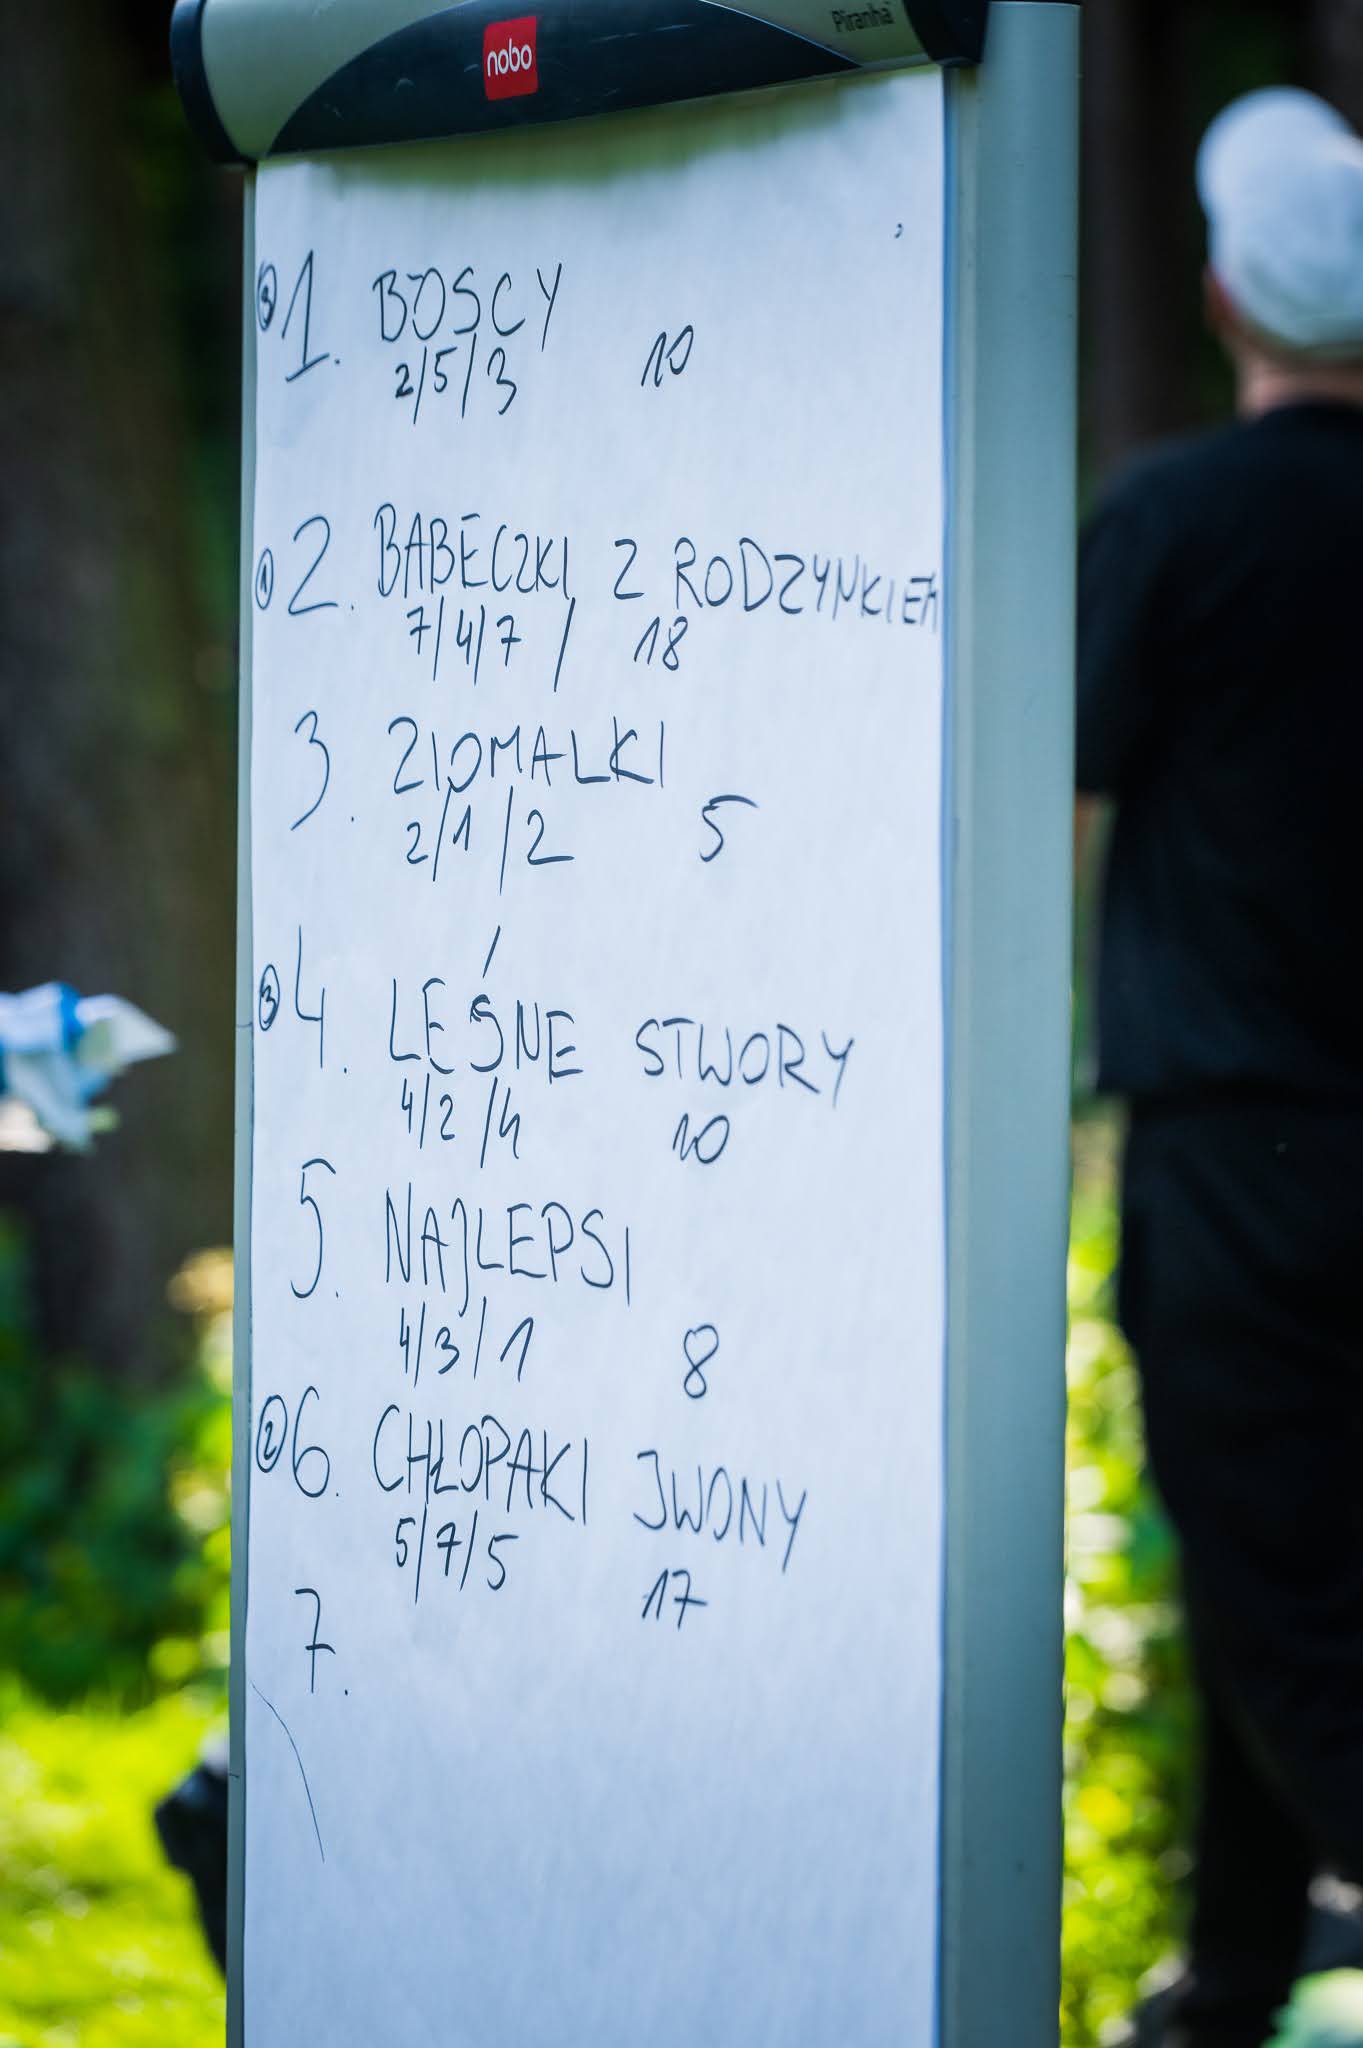 nobo
Piranha
③ 1. BOSCY
2/5/3 10
① 2. BABECZKI Z RODZYNKIEM
7/4/7/ 18
3. ZIOMALKI
2/1/2 5
③ 4. LEŚNE STWORY
4/2/4 10
5. NAJLEPSI
4/3/1 8
② 6. CHŁOPAKI IWONY
5/7/5 17
7.